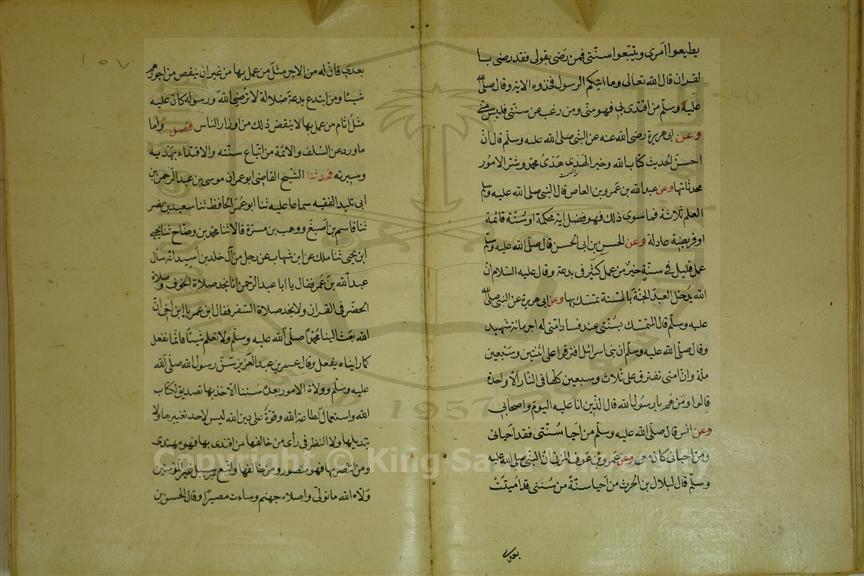 يطيعوا امرى ويتبعوا سنتى فمن رضى بقولى فقد رضى با
لقران قال الله تعالى وما اتيكم الرسول فخذوه الاية وقال صلى الله
عليه وسلم من اقتدى بى فهو منى ومن رغب عن سنتى فليس منى
وعن ابى هريرة رضى الله عنه عن النبى صلى الله عليه وسلم قال ان
احسن الحديث كتاب الله وخير الهدى هدى محمد وشر الامور
محدثاتها وعن عبدالله بن عمرو بن العاص قال النبى صلى الله عليه وسلم
العلم ثلاثة فما سوى ذلك فهو فضل اية محكمة او سنة قائمة
او فريضة عادلة وعن الحسن بن ابى الحسن قال صلى الله عليه وسلم
عمل قليل فى سنة خير من عمل كثير فى بدعة وقال عليه السلام ان
الله يدخل العبد الجنة بالسنة تمسك بها وعن ابى هريرة عن النبى صلى الله
عليه وسلم قال المتمسك بسنتى عند فساد امتى له اجر مائة شهيد
وقال صلى الله عليه وسلم ان بنى اسرائل افترقوا على اثنتين وسبعين
ملة وان امتى تفترق على ثلاث وسبعين كلها فى النار الا واحدة
قالوا ومن هم يا رسول الله قال الذين انا عليه اليوم واصحابى
وعن انس قال صلى الله عليه وسلم من احيا سنتى فقد احيانى
ومن احيانى كان معى وعن عمرو بن عوف المزنى ان النبى صلى الله عليه
وسلم قال لبلال بن الحرث من احيا سنة من سنتى قد اميتت
بعدى
١٥٧
بعدى فان له من الاجر مثل من عمل بها من غير ان ينقص من اجورهم
شيئا ومن ابتدع بدعة ضلالة لا ترضى الله ورسوله كان عليه
مثل اثام من عمل بها لا ينقض ذلك من اوزار الناس فصل واما
ما ورد عن السلف والائمة من اتباع سنته والاقتداء بهديه
وسيرته فحدثنا الشيخ القاضى ابو عمران موسى بن عبد الرحمن بن
ابى تليد الفقيه سماعا عليه ثنا ابو عمر الحافظ ثنا سعيد بن نصر
ثنا قاسم بن اصبغ ووهب بن مسرة قالا ثنا محمد بن وضاح ثنا يحيى
ابن يحيى ثنا ملك عن ابن شهاب عن رجل من آل خلد بن اسيد انه سأل
عبد الله بن عمر فقال يا ابا عبد الرحمن انا نجد صلاة الخوف وصلاة
الحضر فى القران ولا نجد صلاة السفر فقال ابن عمر يا ابن اخى ان
الله بعث الينا محمدا صلى الله عليه وسلم ولا نعلم شيئا فانما نفعل
كما رايناه يفعل وقال عمر بن عبد العزيز سن رسول الله صلى الله
عليه وسلم وولاة الامور بعده سننا الاخذ بها تصديق لكتاب
الله واستعمال لطاعة الله وقوة على دين الله ليس لاحد تغييرها ولا
تبديلها ولا النظر فى رأى من خالفها من اقتدى بها فهو مهتدى
ومن انتصر بها فهو منصور ومن خالفها واتبع سبيل غير المؤمنين
ولاه الله ما تولى واصلاه جهنم وساءت مصيرا وقال الحسن بن
1957
Copyright © King Saud University